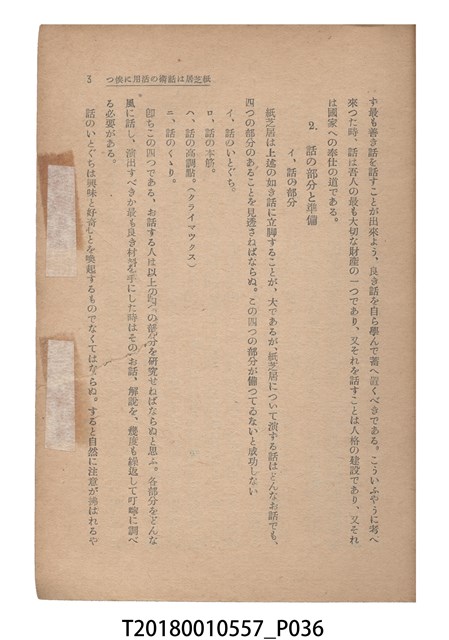 紙芝居は話術の活用に俟つ 3
す最も善き話を話すことが出來よう、良き話を自ら學んで蓄へ置くべきである。こういふやうに考へ
來つた時、話は吾人の最も大切な財產の一つであり、又それを話すことは人格の建設であり、又それ
は國家への奉仕の道である。
2. 話の部分と準備
イ、話の部分
紙芝居は上述の如き話に立脚することが、大であるが、紙芝居について演する話はどんなお話でも、
四つの部分のあることを見逃さねばならぬ。この四つの部分が備つてゐないと成功しない
イ、話のいとぐち。
ロ、話の本筋。
ハ、話の高調點。(クライマックス)
ニ、話のくゝり。
卽ちこの四つである、お話する人は以上の四つの部分を研究せねばならぬと思ふ。各部分をどんな
風に話し、演出すべきか最も良き材料を手にした時はそのお話、解說を、幾度も繰返して叮嚀に調べ
る必要がある。
話のいとぐちは興味と好奇心とを喚起するものでなくてはならぬ。すると自然に注意が拂はれるや
T20180010557_P036